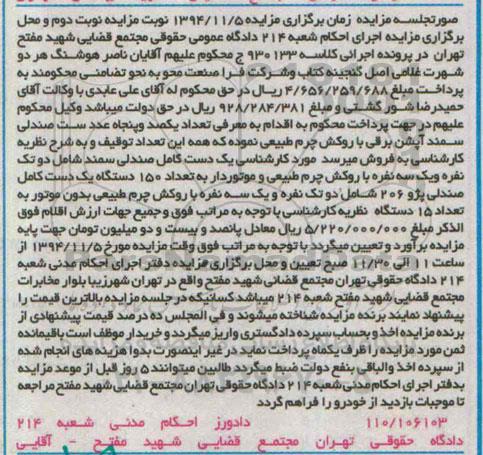 صورتجلسه مزایده زمان برگزاری مزایده ۱۳۹۴/۱۱/۵ نوبت مزایده نوبت دوم و محل
برگزاری مزایده اجرای احکام شعبه ۲۱۴ دادگاه عمومی حقوقی مجتمع قضایی شهید مفتح
تهران در پرونده اجرائی کلاسه ۹۳۰۱۳۳ ج محکوم علیهم آقایان ناصر هوشنگ هر دو
شهرت غلامی اصل گنجینه کتاب وشرکت فرا صنعت محو به نحو تضامنی محکومند به
پرداخت مبلغ ۴/۶۵۶/۲۵۹/۶۸۸ ریال در حق محکوم له آقای علی عابدی با وکالت آقای
حمیدرضا شور گشتی و مبلغ ۹۲۸/۲۸۴/۳۸۱ ریال در حق دولت میباشد وکیل محکوم
علیهم در جهت پرداخت محکوم به اقدام به معرفی تعداد یکصد وپنجاه عدد ست صندلی
سمند آپشن برقی با روکش چرم طبیعی نموده که همه این تعداد توقیف و به شرح نظریه
کارشناسی به فروش میرسد مورد کارشناسی یک دست کامل صندلی سمند شامل دو تک
نفره ویک سه نفره با روکش چرم طبیعی و موتوردار به تعداد ۱۵۰ دستگاه یک دست کامل
صندلی پژو ۲۰۶ شامل دو تک نفره و یک سه نفره با روکش چرم طبیعی بدون موتور به
تعداد ۱۵ دستگاه نظریه کارشناسی با توجه به مراتب فوق و جمیع جهات ارزش اقلام فوق
الذکر مبلغ ۵/۲۲۰/۰۰۰/۰۰۰ ریال معادل پانصد و بیست و دو میلیون تومان جهت پایه
مزایده برآورد و تعیین میگردد با توجه به مراتب فوق وقت مزایده مورخ ۱۳۹۴/۱۱/۵ از
ساعت ۱۱ الی ۱۱/۳۰ صبح تعیین و محل برگزاری مزایده دفتر اجرای احکام مدنی شعبه
۲۱۴ دادگاه حقوقی تهران مجتمع قضائی شهید مفتح واقع در تهران شهرزیبا بلوار مخابرات
مجتمع قضایی شهید مفتح شعبه ۲۱۴ میباشد کسانیکه در جلسه مزایده بالاترین قیمت را
پیشنهاد نمایند برنده مزایده شناخته میشوند و فی المجلس ده درصد قیمت پیشنهادی از
برنده مزایده اخذ و بحساب سپرده دادگستری واریز میگردد و خریدار موظف است باقیمانده
ثمن مورد مزایده را ظرف یکماه پرداخت نماید در غیر اینصورت بدوا هزینه های انجام شده
از سپرده اخذ والباقی بنفع دولت ضبط میگردد طالبین میتوانند ۵ روز قبل از موعد مزایده
بدفتر اجرای احکام مدنی شعبه ۲۱۴ دادگاه حقوقی تهران مجتمع قضایی شهید مفتح مراجعه
تا موجبات بازدید از خودرو را فراهم گردد
۱۱۰/۱۰۶۱۰۳ دادورز احکام مدنی شعبه ۲۱۴
دادگاه حقوقی تهران مجتمع قضایی شهید مفتح - آقایی